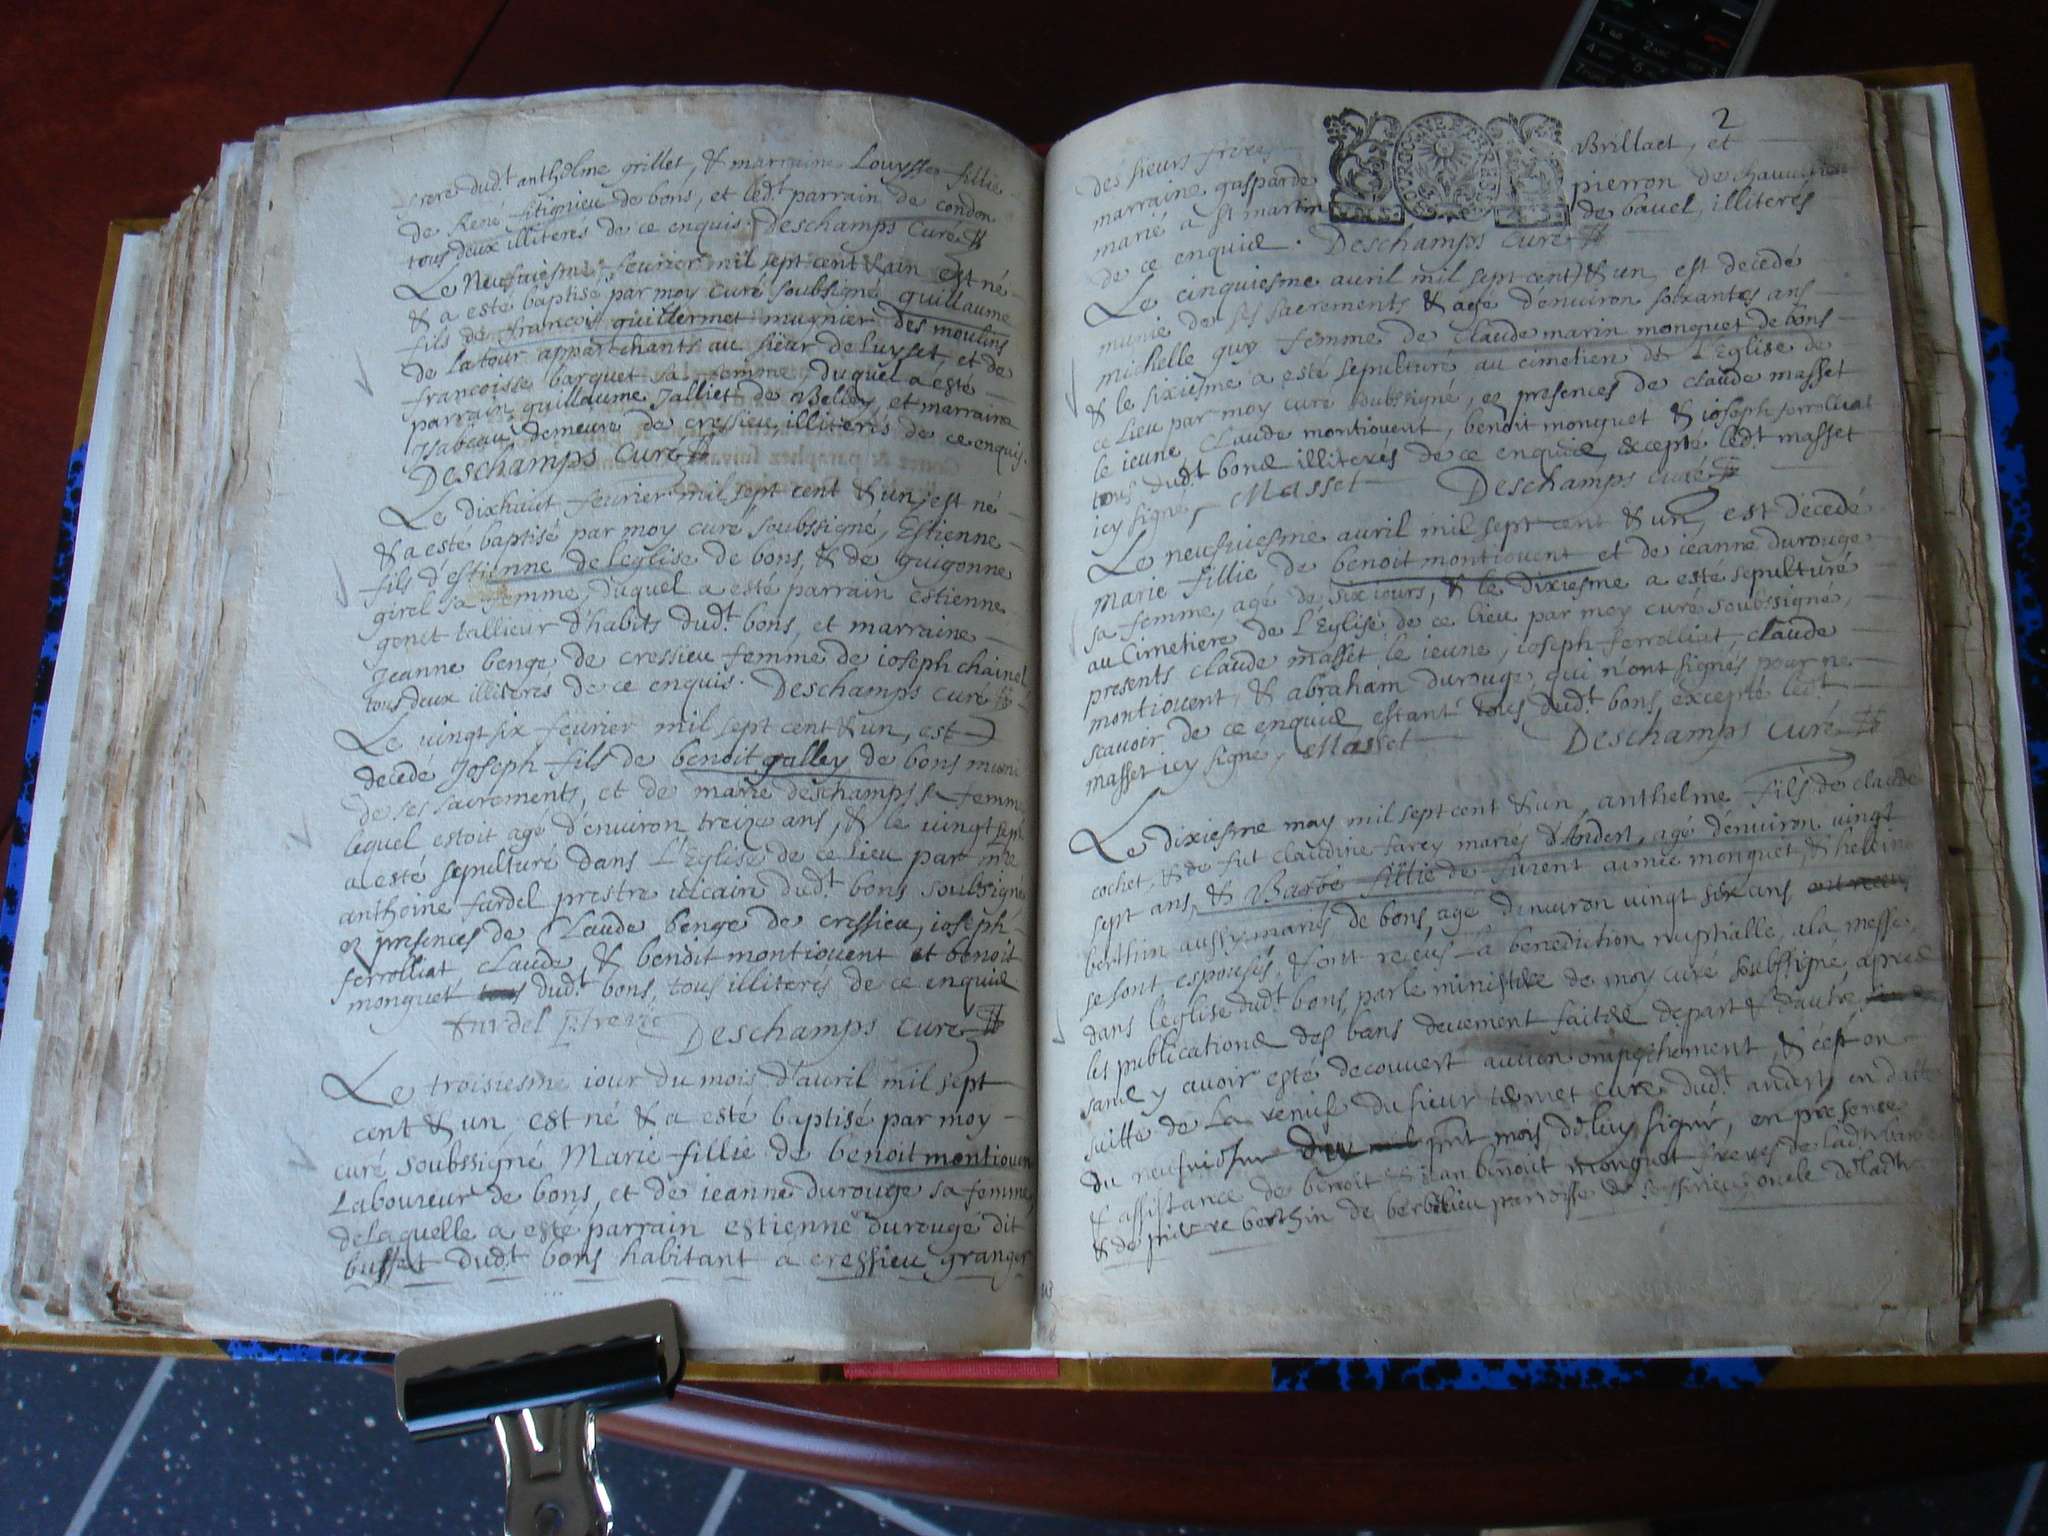 frere dud.t anthelme grillet, & marraine Louysse fillie
de René fitignieu de bons, et led.t parrain de condon
tous deux illiterés de ce enquis. Deschamps Curé
Le Neufviesme fevrier mil sept cent & un est né
& a esté baptisé par moy curé soubsigné guillaume
fils de francois guillermet musnier des moulins
de la tour appartenants au sieur de Luyset, et de
francoisse barquet sa femme, duquel a esté
parrain guillaume Jalliet de Belley, et marraine
Isabeau demeure de cressieu illiterés de ce enquis.
Deschamps Curé
Le dixhuit fevrier mil sept cent & un, est né
& a esté baptisé par moy curé soubssigné, Estienne
fils d'estienne de leglise de bons, & de guigonne
girel sa femme, duquel a esté parrain estienne
genet tallieur d'habits dud.t bons, et marraine
Jeanne benge de cressieu femme de ioseph chainel
tous deux illiterés de ce enquis. Deschamps curé
Le vingt six fevrier mil sept cent & un, est
decedé Joseph fils de benoit galley de bons muni
de ses sacrements, et de marie deschamps sa femme
lequel estoit agé d'environ treize ans, & le vingt sept
a esté sepulturé dans L'Eglise de ce lieu par m.re
anthoine fardel prestre vicaire dud.t bons soubsigné
ez presences de Claude benge de cressieu, ioseph
ferrolliat claude & benoit montiouent et benoit
monguet dud.t bons, tous illiterés de ce enquis
fardel Deschamps curé
Le troisiesme iour du mois d'avril mil sept
cent & un est né & a esté baptisé par moy
curé soubssigné Marie fillie de benoit montiouent
Laboureur de bons, et de ieanne durouge sa femme
de laquelle a esté parrain estienne durouge dit
busset dud.t bons habitant a cressieu granger
2
des sieurs freres Brillaet, et
marraine gasparde pierron de
marié a st martin de bavel, illiterés
de ce enquis. Deschamps curé
Le cinquiesme avril mil sept cent & un, est decedé
munie de ses sacrements & agé d'environ soixantes ans
michelle guy femme de claude marin monguet de bons
& le sixiesme a esté sepulturé au cimetiere de L'Eglise de
ce lieu par moy curé soubssigné, ez presences de claude masset
le ieune, claude montiouent, benoit monguet & ioseph ferrolliat
tous dud.t bons illiterés de ce enquis excepté led.t masset
icy signé, Masset Deschamps curé
Le neufviesme avril mil sept cent & un, est decedé
marie fillie de benoit montiouent et de ieanne durouge
sa femme, agé de six iours, & le dixiesme a esté sepulturé
au Cimetiere de L'Eglise de ce lieu par moy curé soubssigné,
presents claude masset le ieune, ioseph ferrolliat, claude
montiouent, & abraham durouge, qui n'ont signés pour ne
scavoir de ce enquis, estant tous dud.t bons, excepté led.t
masset icy signé, Masset Deschamps Curé
Le dixiesme may mil sept cent & un, anthelme fils de claude
cochet, & de fut claudine farcy mariés d'Andert, agé d'environ vingt
sept ans, & Barbe fillie de furent aimée monguet, &
berthin aussy mariés de bons, agé d'environ vingt six ans
se sont espousés, & ont reçeus la benediction nuptialle, a la messe,
dans leglise dud.t bons, par le ministere de moy curé soubsigné, apres
les publications des bans deuement faittes de part & d'autre
sans y avoir esté decouvert aucun empeschement, & c'est en
suitte de la remise du sieur curé dud.t andert, en datte
du mois de luy signé, en presence
& assistance de benoit & Jean benoit monguet freres de ladte barbe
& de pierre berthin de berbelieu parroisse de oncle de ladte